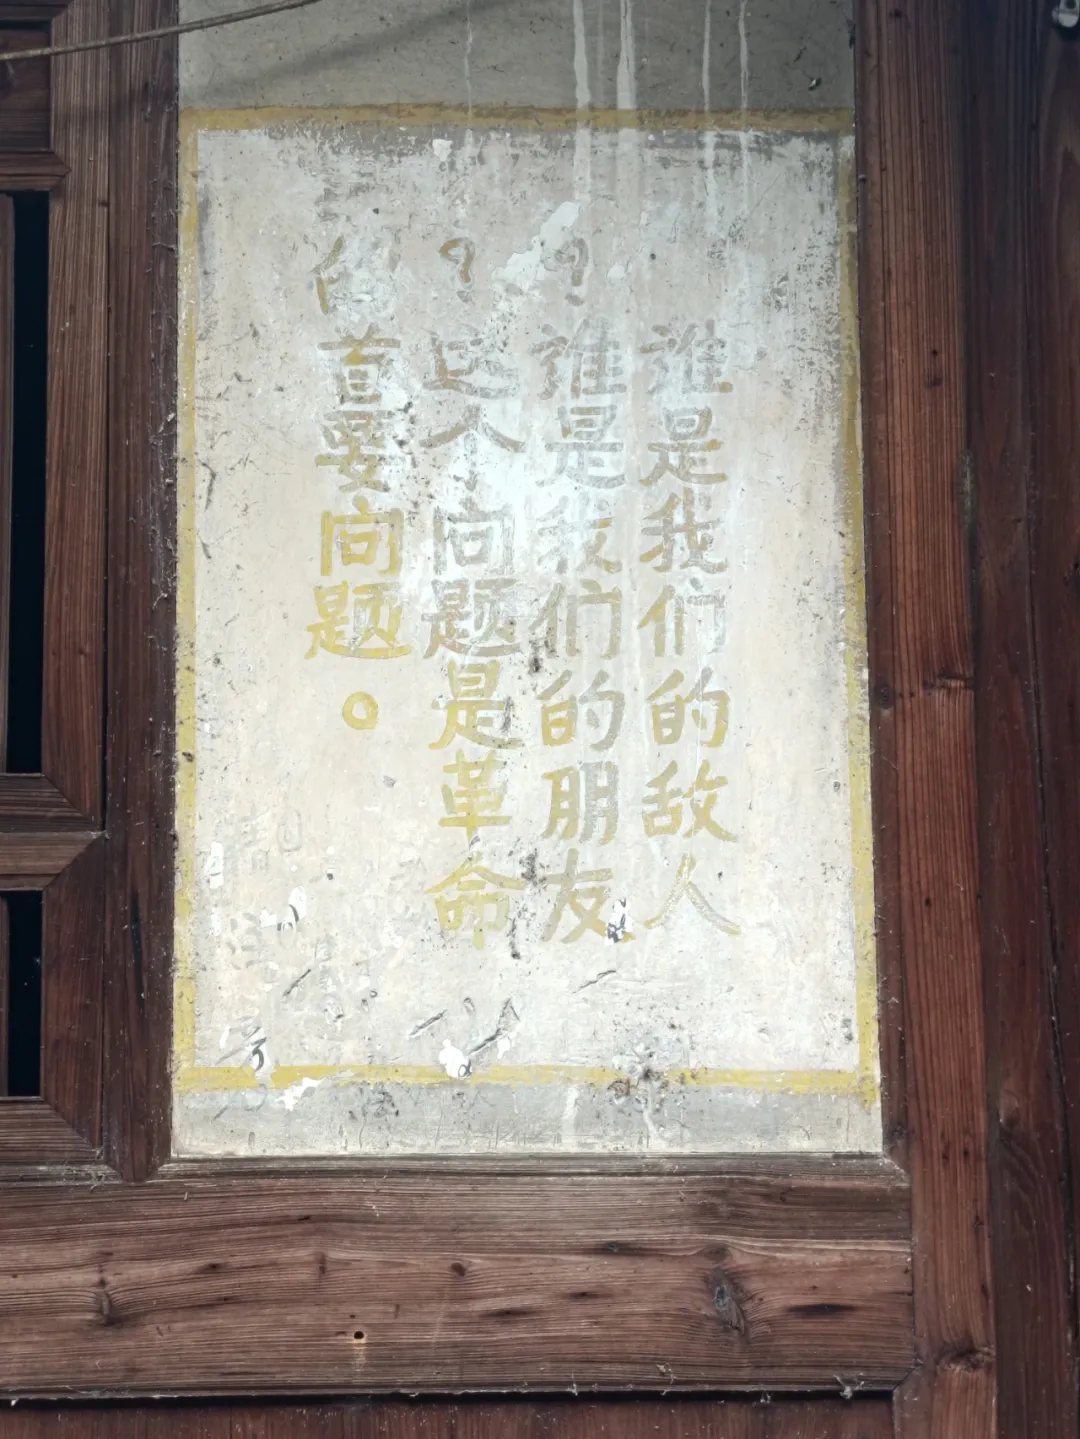 谁是我们的敌人
？谁是我们的朋友
？这个问题是革命
的首要问题。